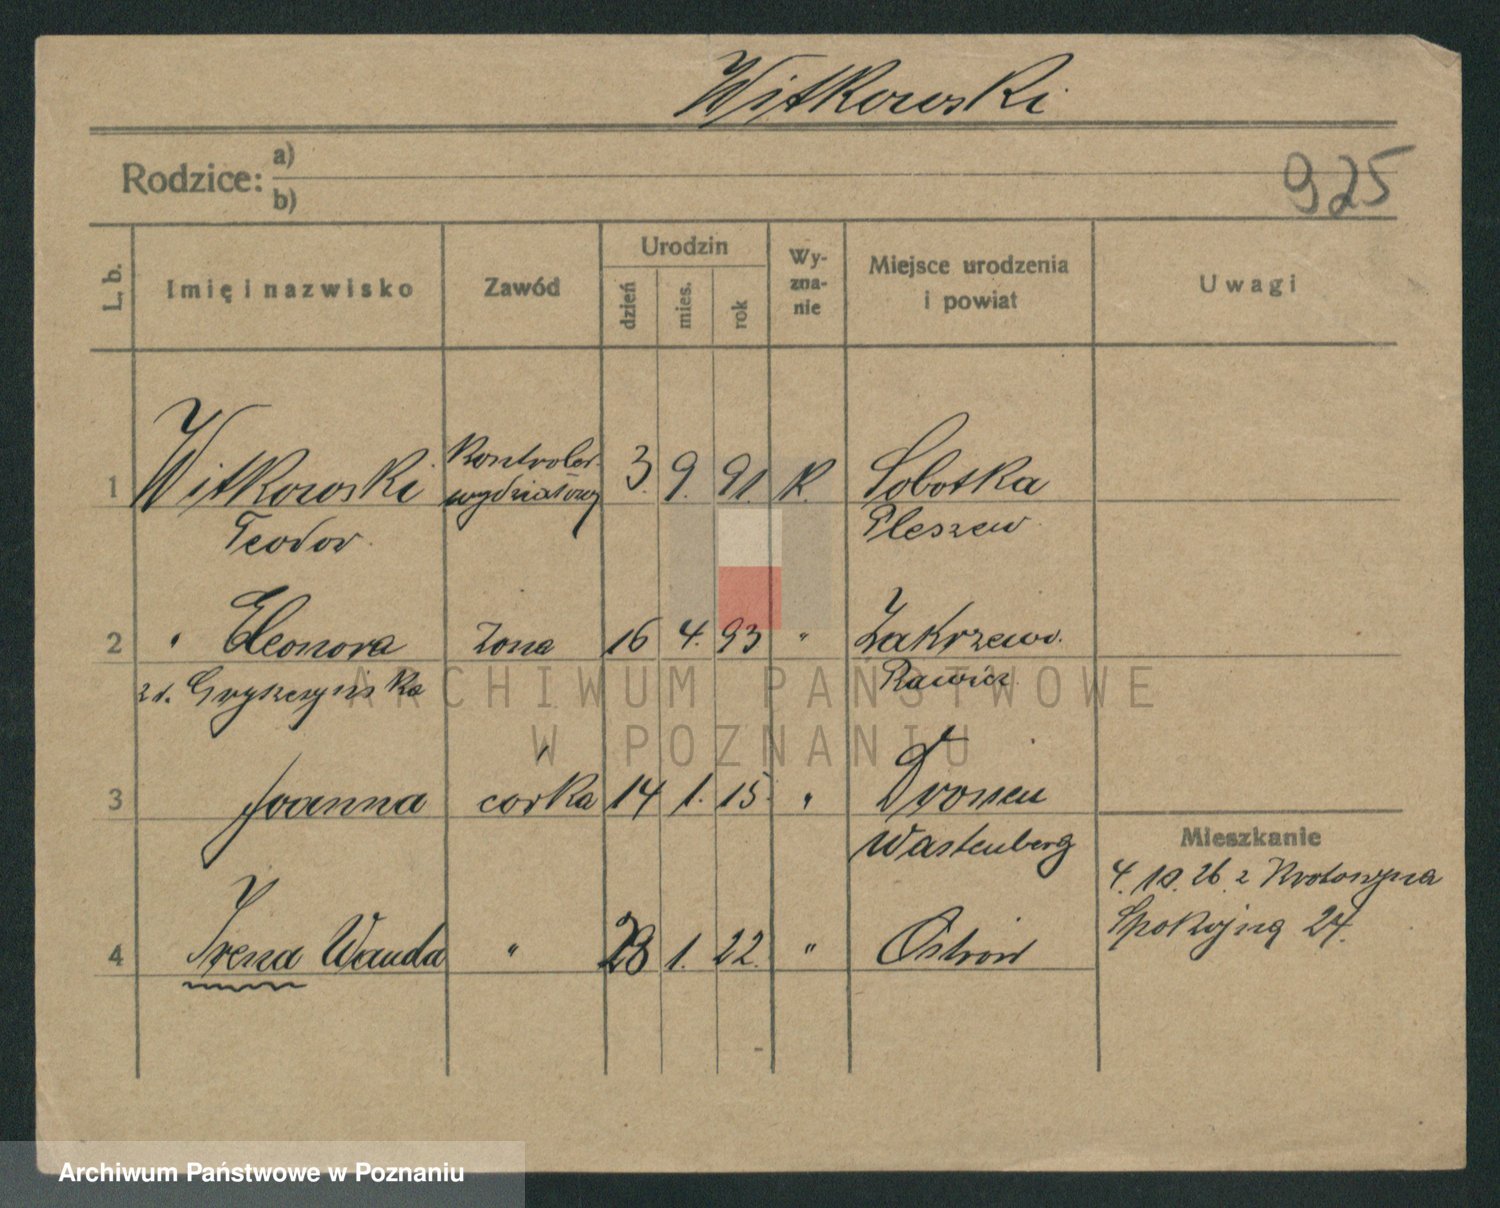 Witkowski
Rodzice: a)
b)
925
L. b.
Imię i nazwisko
Zawód
Urodzin
dzień
mies.
rok
Wy-
zna-
nie
Miejsce urodzenia
i powiat
Uwagi
1 Witkowski Kontroler 3. 9. 91. K. Sobotka
Teodor wydziałowy Pleszew
2 " Eleonora żona 16 4. 93 " Zakrzewo.
zd. Gryszczyńska Rawicz
ARCHIWUM PAŃSTWOWE
W POZNANIU
3 Joanna córka 14 1. 15. "
Wastenberg
Mieszkanie
4. 10. 26 z Krotoszyna
Spokojna 24.
4 Irena Wanda " 28 1. 22. " Ostrów
Archiwum Państwowe w Poznaniu